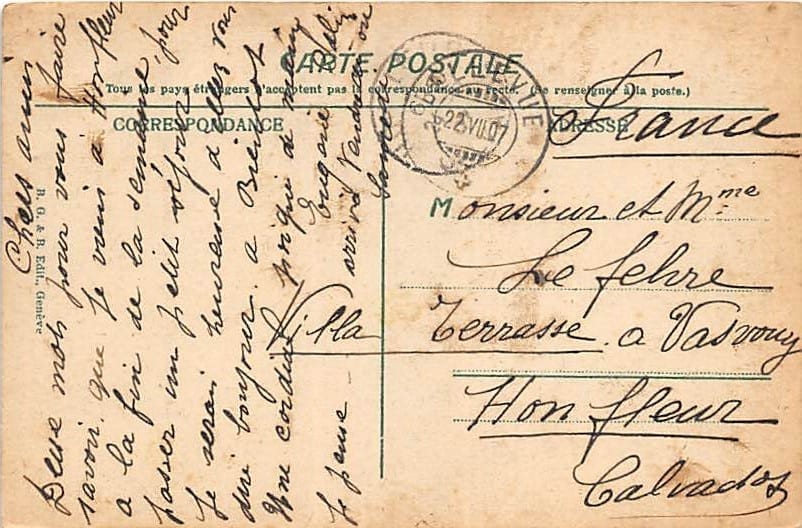 CARTE POSTALE
Tous les pays étrangers n'acceptent pas la correspondance au recto. (Se renseigner à la poste.)
CORRESPONDANCE
ADRESSE
France
Monsieur et Mme
Le febre
Villa Terrasse. a Vasvouy
Hon fleur
Calvados
22.VII.07
B. G. & R. Edit., Genève
Chers amis
Deux mots pour vous faire
savoir que je viens a Honfleur
a la fin de la semaine pour
passer un petit séjour
Je serai heureuse d'allez vous
dire bonjour. a Bientot
Une cordiale poignée de main
Eugénie
Je pense arrivé Vendredi ou
Samedi